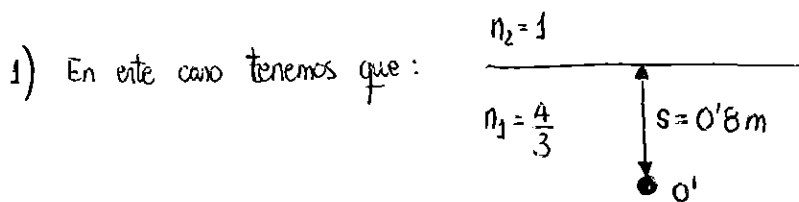 n₂ = 1
1) En este caso tenemos que :
n₁ = 4/3
s = 0'8 m
O'